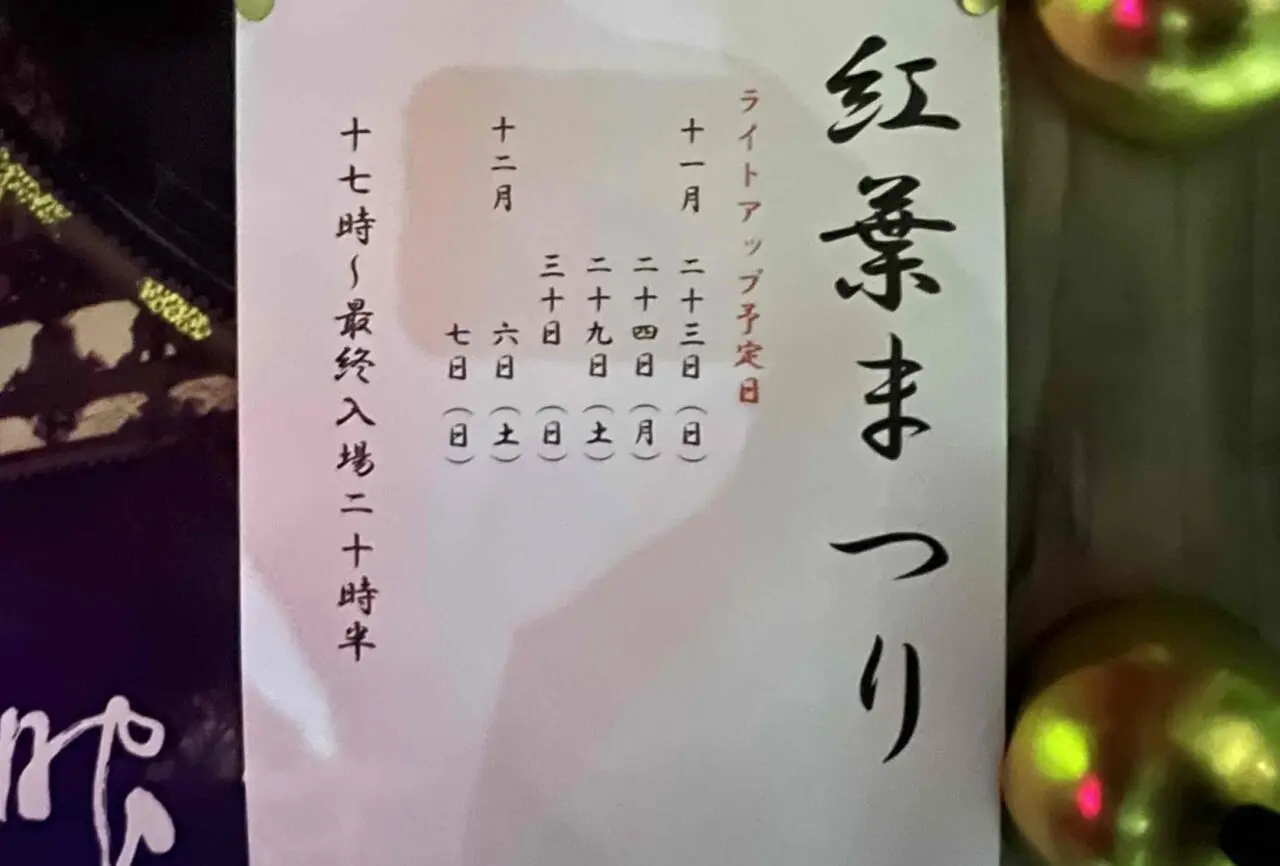 紅葉まつり
ライトアップ予定日
十一月 二十三日（日）
二十四日（月）
二十九日（土）
三十日（日）
十二月 六日（土）
七日（日）
十七時～最終入場二十時半